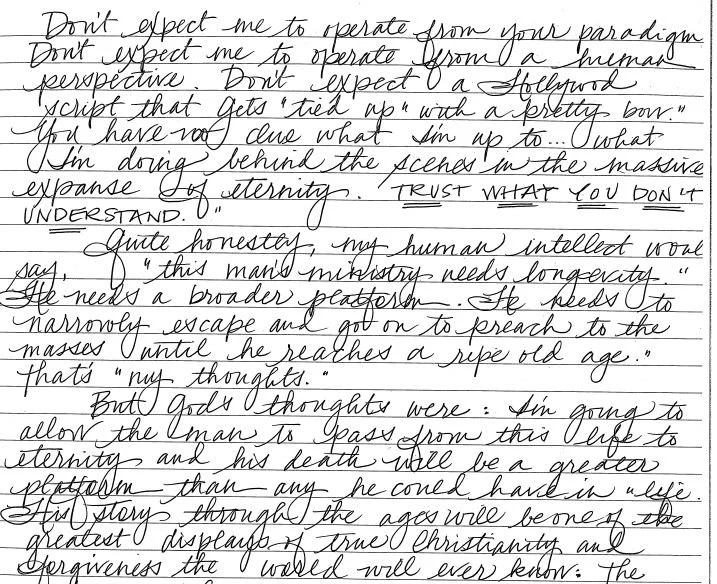 Don't expect me to operate from your paradigm
Don't expect me to operate from a human
perspective. Don't expect a Hollywood
script that gets "tied up" with a pretty bow."
You have no clue what I'm up to... what
I'm doing behind the scenes in the massive
expanse of eternity. TRUST WHAT YOU DON'T
UNDERSTAND."
Quite honestly, my human intellect woul
say, "this man's ministry needs longevity."
He needs a broader platform. He needs to
narrowly escape and go on to preach to the
masses until he reaches a ripe old age."
that's "my thoughts."
But God's thoughts were: I'm going to
allow the man to pass from this life to
eternity and his death will be a greater
platform than any he could have in "life.
His story through the ages will be one of the
greatest displays of true Christianity and
forgiveness the world will ever know: The